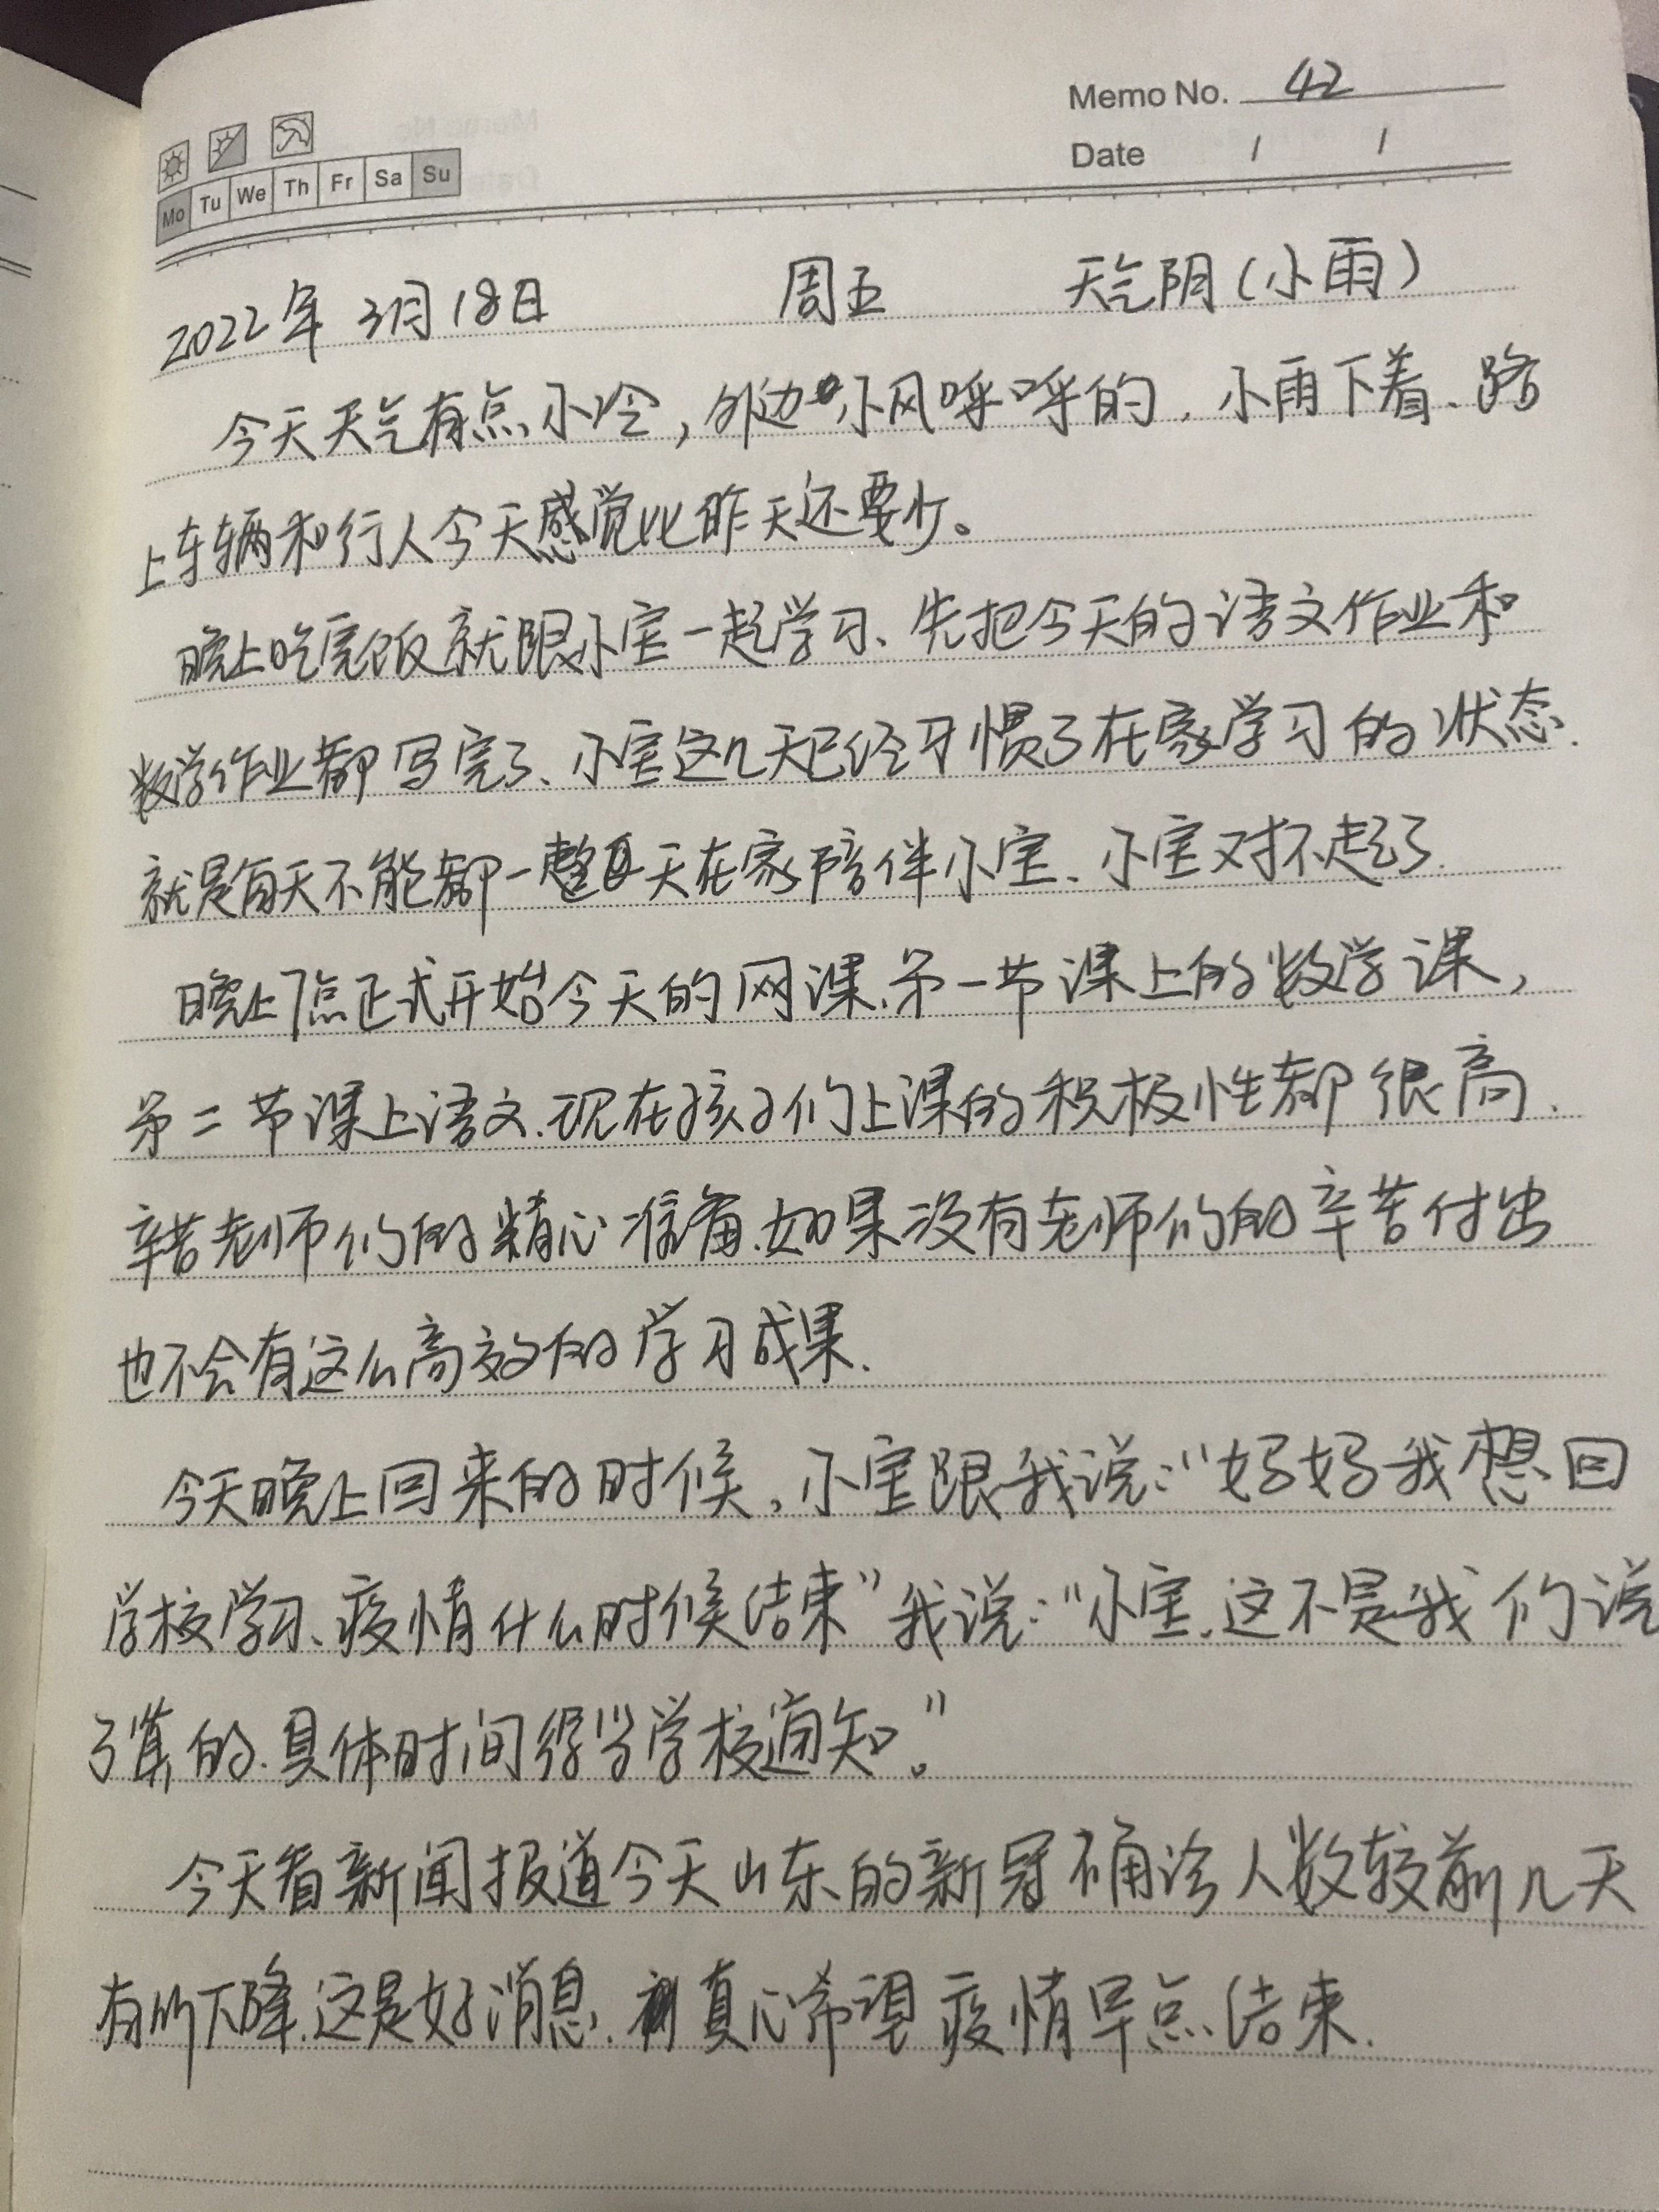 Memo No. 42
Mo Tu We Th Fr Sa Su
Date / /
2022年 3月18日 周五 天气阴(小雨)
今天天气有点小冷,外边小风呼呼的,小雨下着、路
上车辆和行人今天感觉比昨天还要少。
晚上吃完饭就跟小宝一起学习、先把今天的语文作业和
数学作业都写完了、小宝这几天已经习惯了在家学习的状态.
就是每天不能都一整天在家陪伴小宝、小宝对不起了.
晚上7点正式开始今天的网课.第一节课上的数学课,
第二节课上语文.现在孩子们上课的积极性都很高.
辛苦老师们的精心准备.如果没有老师们的辛苦付出
也不会有这么高效的学习成果.
今天晚上回来的时候,小宝跟我说:“妈妈我想回
学校学习、疫情什么时候结束”我说:“小宝.这不是我们说
了算的.具体时间得等学校通知。”
今天看新闻报道今天山东的新冠确诊人数较前几天
有所下降.这是好消息.真心希望疫情早点结束.